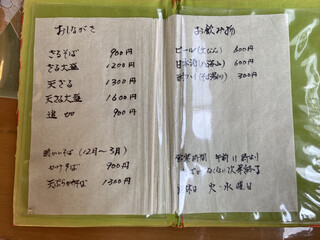 おしながき
ざるそば 900円
ざる大盛 1200円
天ざる 1300円
天ざる大盛 1600円
追加 900円
温かいそば (12月〜3月)
かけそば 900円
天ぷらそば 1300円
お飲み物
ビール(大びん) 600円
日本酒 600円
300円
営業時間 午前11時より
そばがなくなり次第終了
定休日 火・水曜日